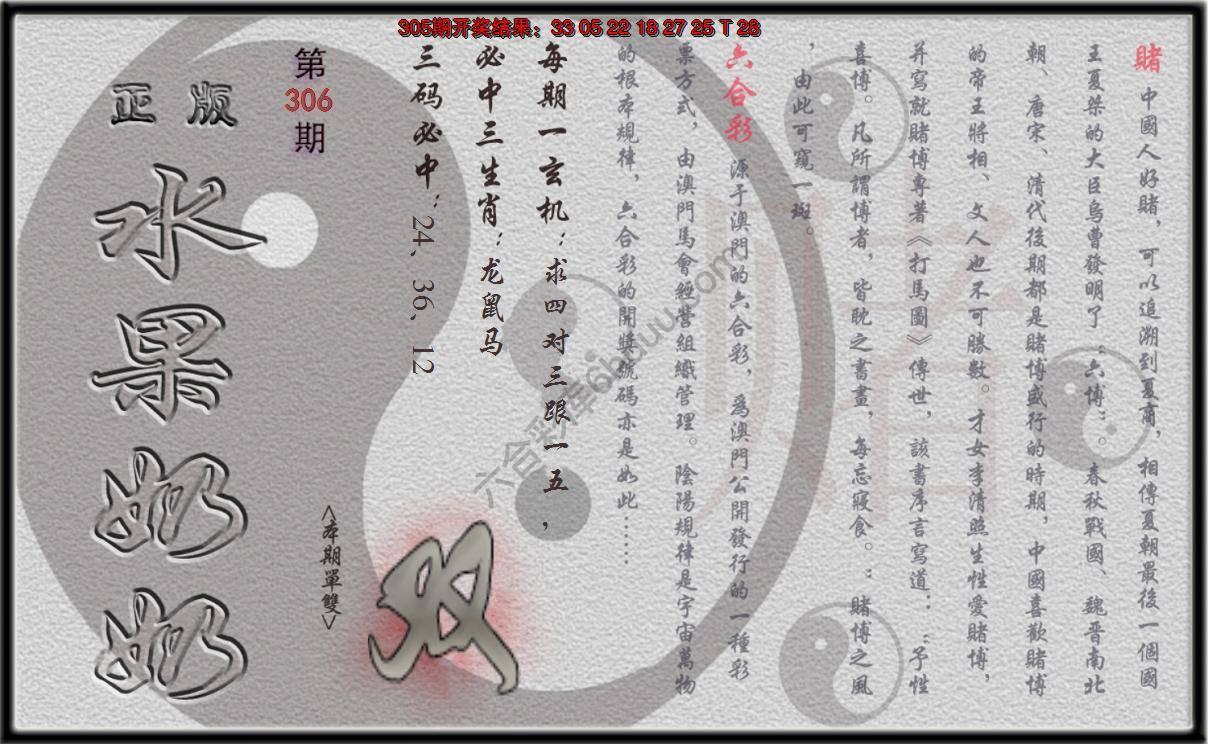 305期开奖结果：33 05 22 18 27 25 T 28
賭 中國人好賭，可以追溯到夏商，相傳夏朝最後一個國
王夏桀的大臣烏曹發明了“六博”。春秋戰國、魏晉南北
朝、唐宋、清代後期都是賭博盛行的時期，中國喜歡賭博
的帝王將相、文人也不可勝數。才女李清照生性愛賭博，
并寫就賭博專著《打馬圖》傳世，該書序言寫道：“予性
喜博。凡所謂博者，皆耽之書畫，每忘寢食。：賭博之風
，由此可窺一斑。
六合彩 源于澳門的六合彩，爲澳門公開發行的一種彩
票方式，由澳門馬會經營組織管理。陰陽規律是宇宙萬物
的根本規律，六合彩的開獎號碼亦是如此……
每期一玄机：求四对三跟一五，
必中三生肖：龙鼠马
三码必中：24、36、12
第
306
期
正版
水果奶奶
<本期單雙>
双
赌
六合彩库6hduu.com